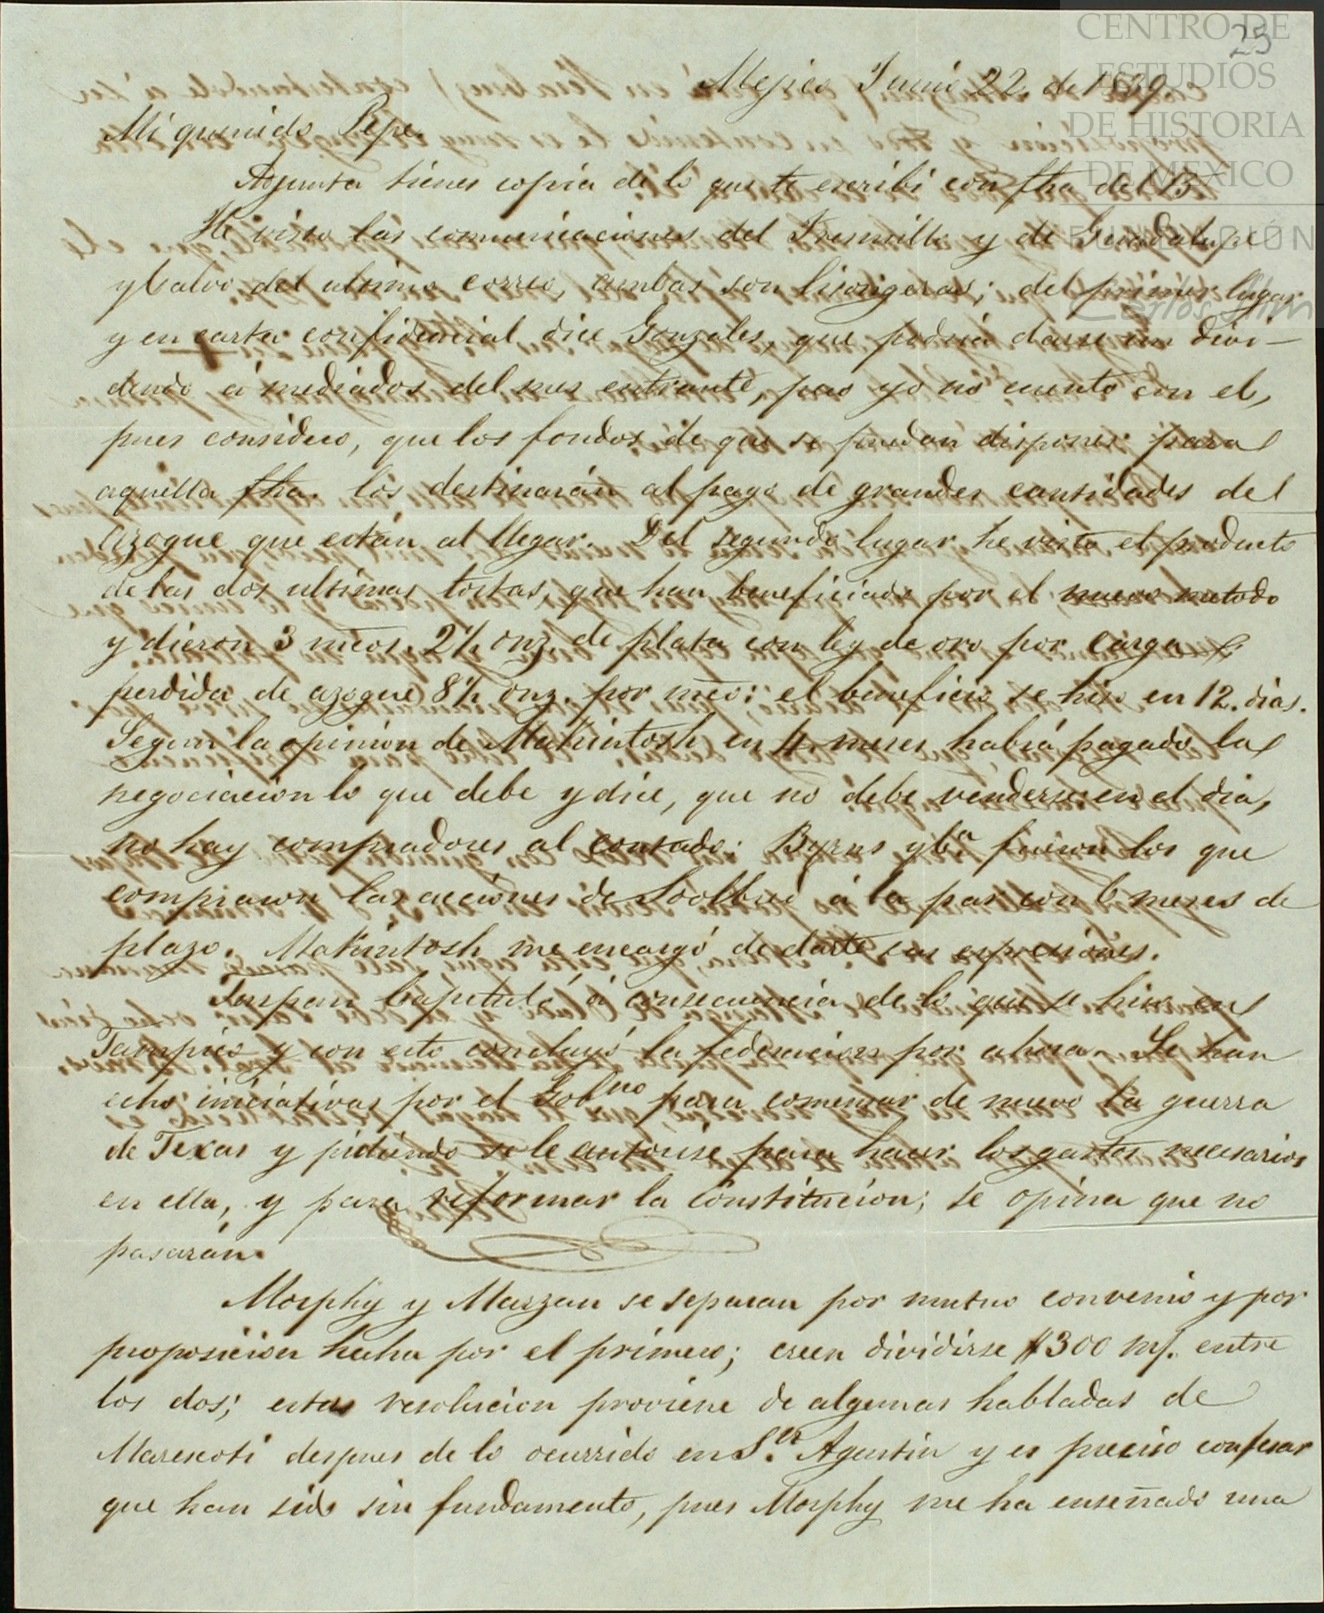 25
CENTRO DE
ESTUDIOS
DE HISTORIA
DE MEXICO
FUNDACIÓN
Carlos Slim
Mejico Junio 22. de 1839.
Mi querido Pepe.
Adjunta tienes copia de lo que te escribi con fha del 15.
He visto las comunicaciones del Fresnillo y de Guadalupe
y Calvo del ultimo correo, ambas son lisongeras; del primer lugar
y en carta confidencial dice Gonzales, que podria darse un divi-
dendo á mediados del mes entrante, pero yo no cuento con el,
pues considero, que los fondos de que se puedan disponer para
aquella fha. los destinarán al pago de grandes cantidades del
azogue que están al llegar. Del segundo lugar he visto el producto
de las dos ultimas tortas, que han beneficiado por el nuevo metodo
y dieron 3 mcos. 2½ onz. de plata con ley de oro por carga
perdida de azogue 8½ onz. por mco: el beneficio se hizo en 12. dias.
Segun la opinion de Makintosh en 4. meses habrá pagado la
negociacion lo que debe y dice, que no debe venderse en el dia,
no hay compradores al contado: Byrns y Cª fueron los que
compraron las acciones de á la par con 6 meses de
plazo. Makintosh me encargó de darte sus espresiones.
Tuspan Capituló á consecuencia de lo que se hizo en
Tampico y con esto concluyó la federacion por ahora. Se han
echo iniciativas por el Gobno para comenzar de nuevo la guerra
de Texas y pidiendo se le autorise para hacer los gastos necesarios
en ella, y para reformar la Constitucion; se opina que no
pasarán.
Morphy y Marzan se separan por mutuo convenio y por
proposicion hecha por el primero; creen dividirse $300 mp. entre
los dos; esta resolucion proviene de algunas habladas de
Marescoti despues de lo ocurrido en Sn. Agustin y es preciso confesar
que han sido sin fundamento, pues Morphy me ha enseñado una